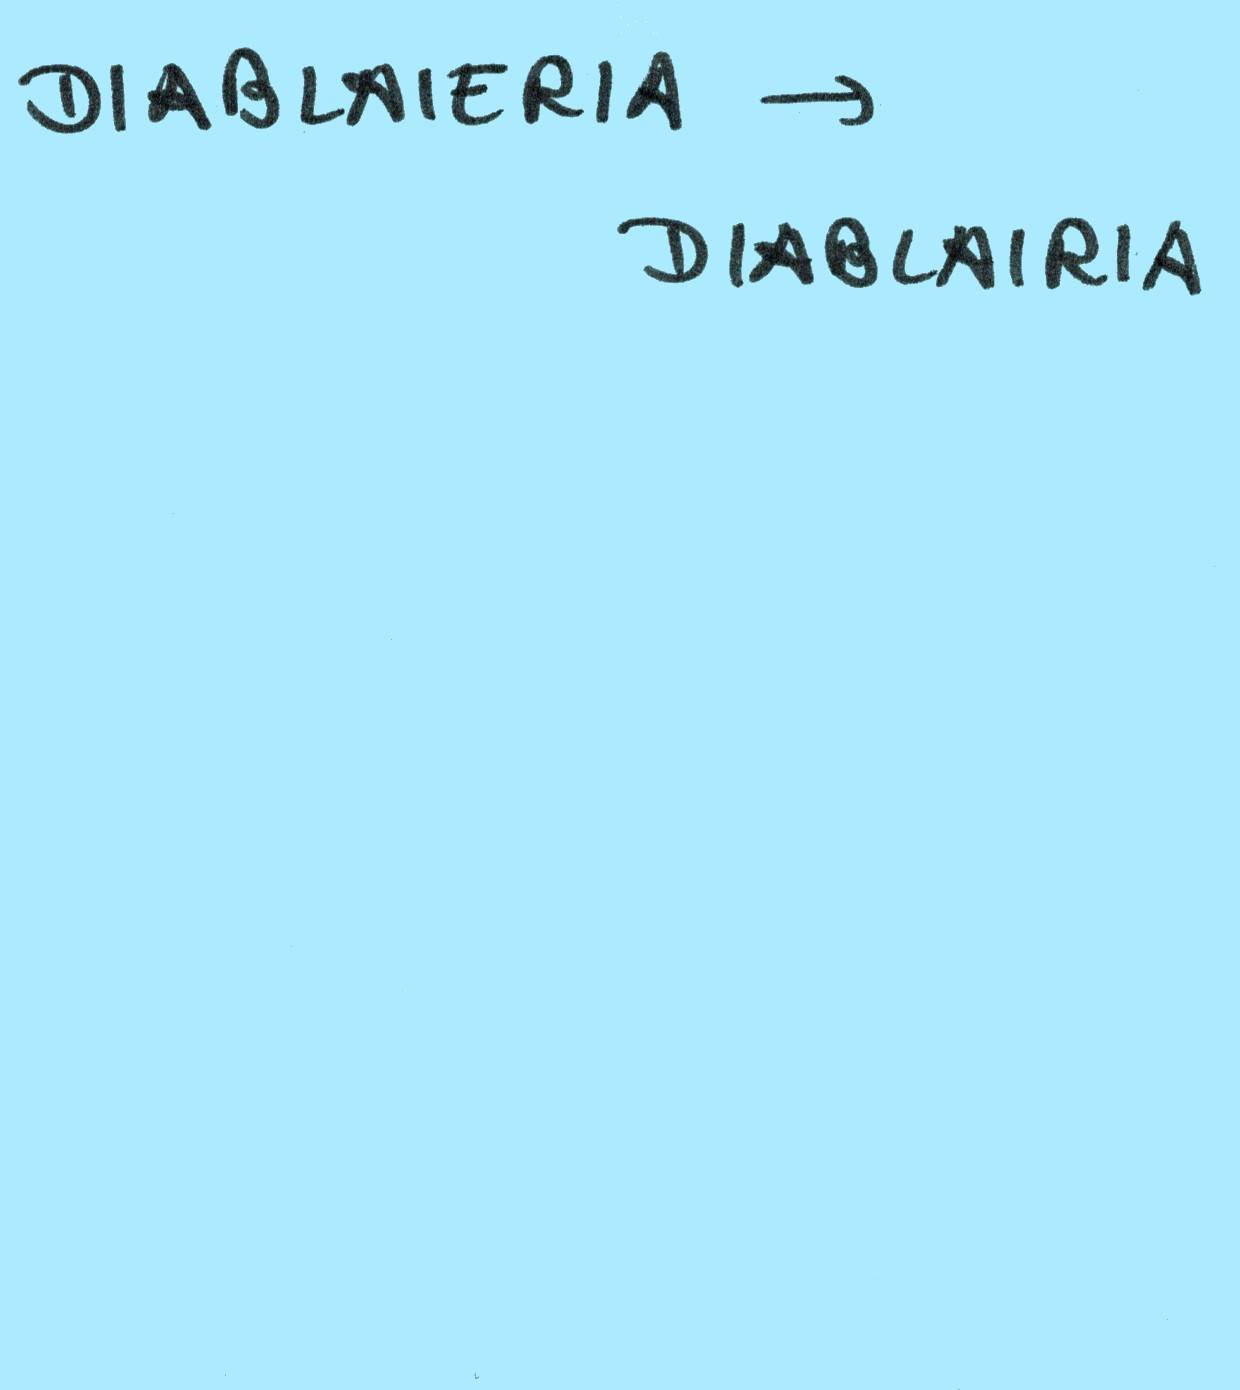 DIABLAIERIA →
DIABLAIRIA